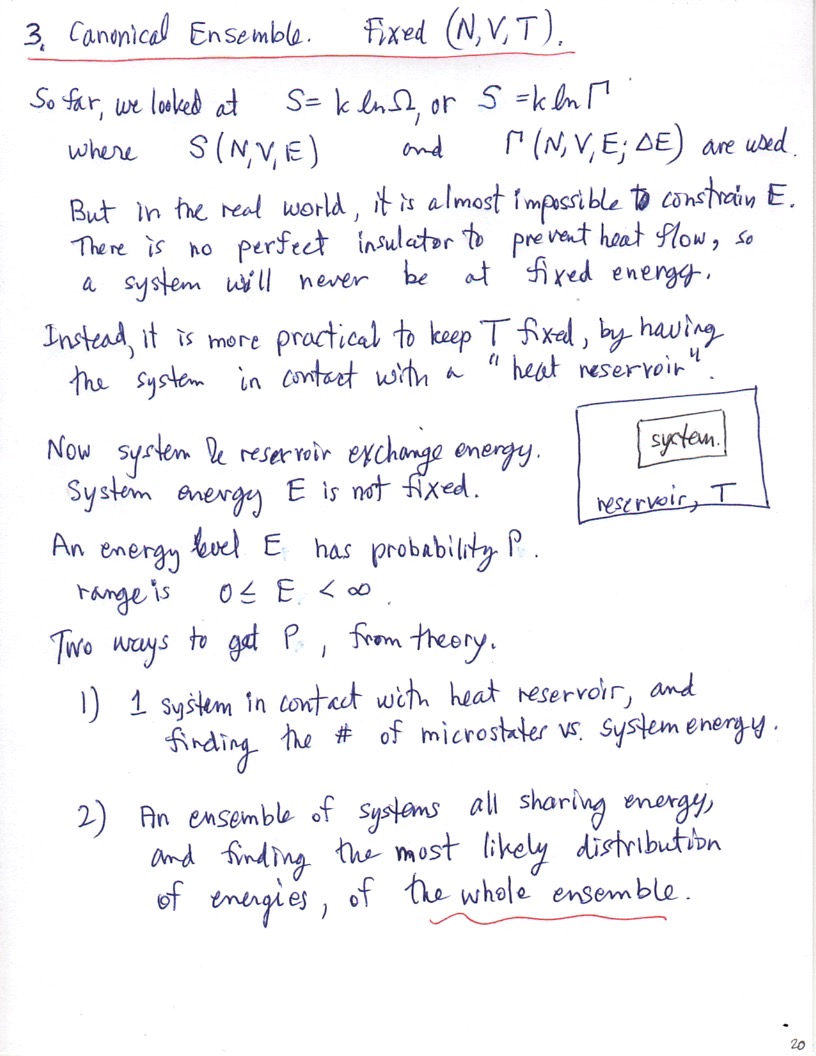 3. Canonical Ensemble. Fixed (N,V,T).
So far, we looked at S = k ln Ω, or S = k ln Γ
where S(N,V,E) and Γ(N,V,E; ΔE) are used.
But in the real world, it is almost impossible to constrain E.
There is no perfect insulator to prevent heat flow, so
a system will never be at fixed energy.
Instead, it is more practical to keep T fixed, by having
the system in contact with a "heat reservoir".
system.
reservoir, T
Now system & reservoir exchange energy.
System energy E is not fixed.
An energy level E has probability P.
range is 0 ≤ E < ∞.
Two ways to get P, from theory.
1) 1 system in contact with heat reservoir, and
finding the # of microstates vs. system energy.
2) An ensemble of systems all sharing energy,
and finding the most likely distribution
of energies, of the whole ensemble.
20